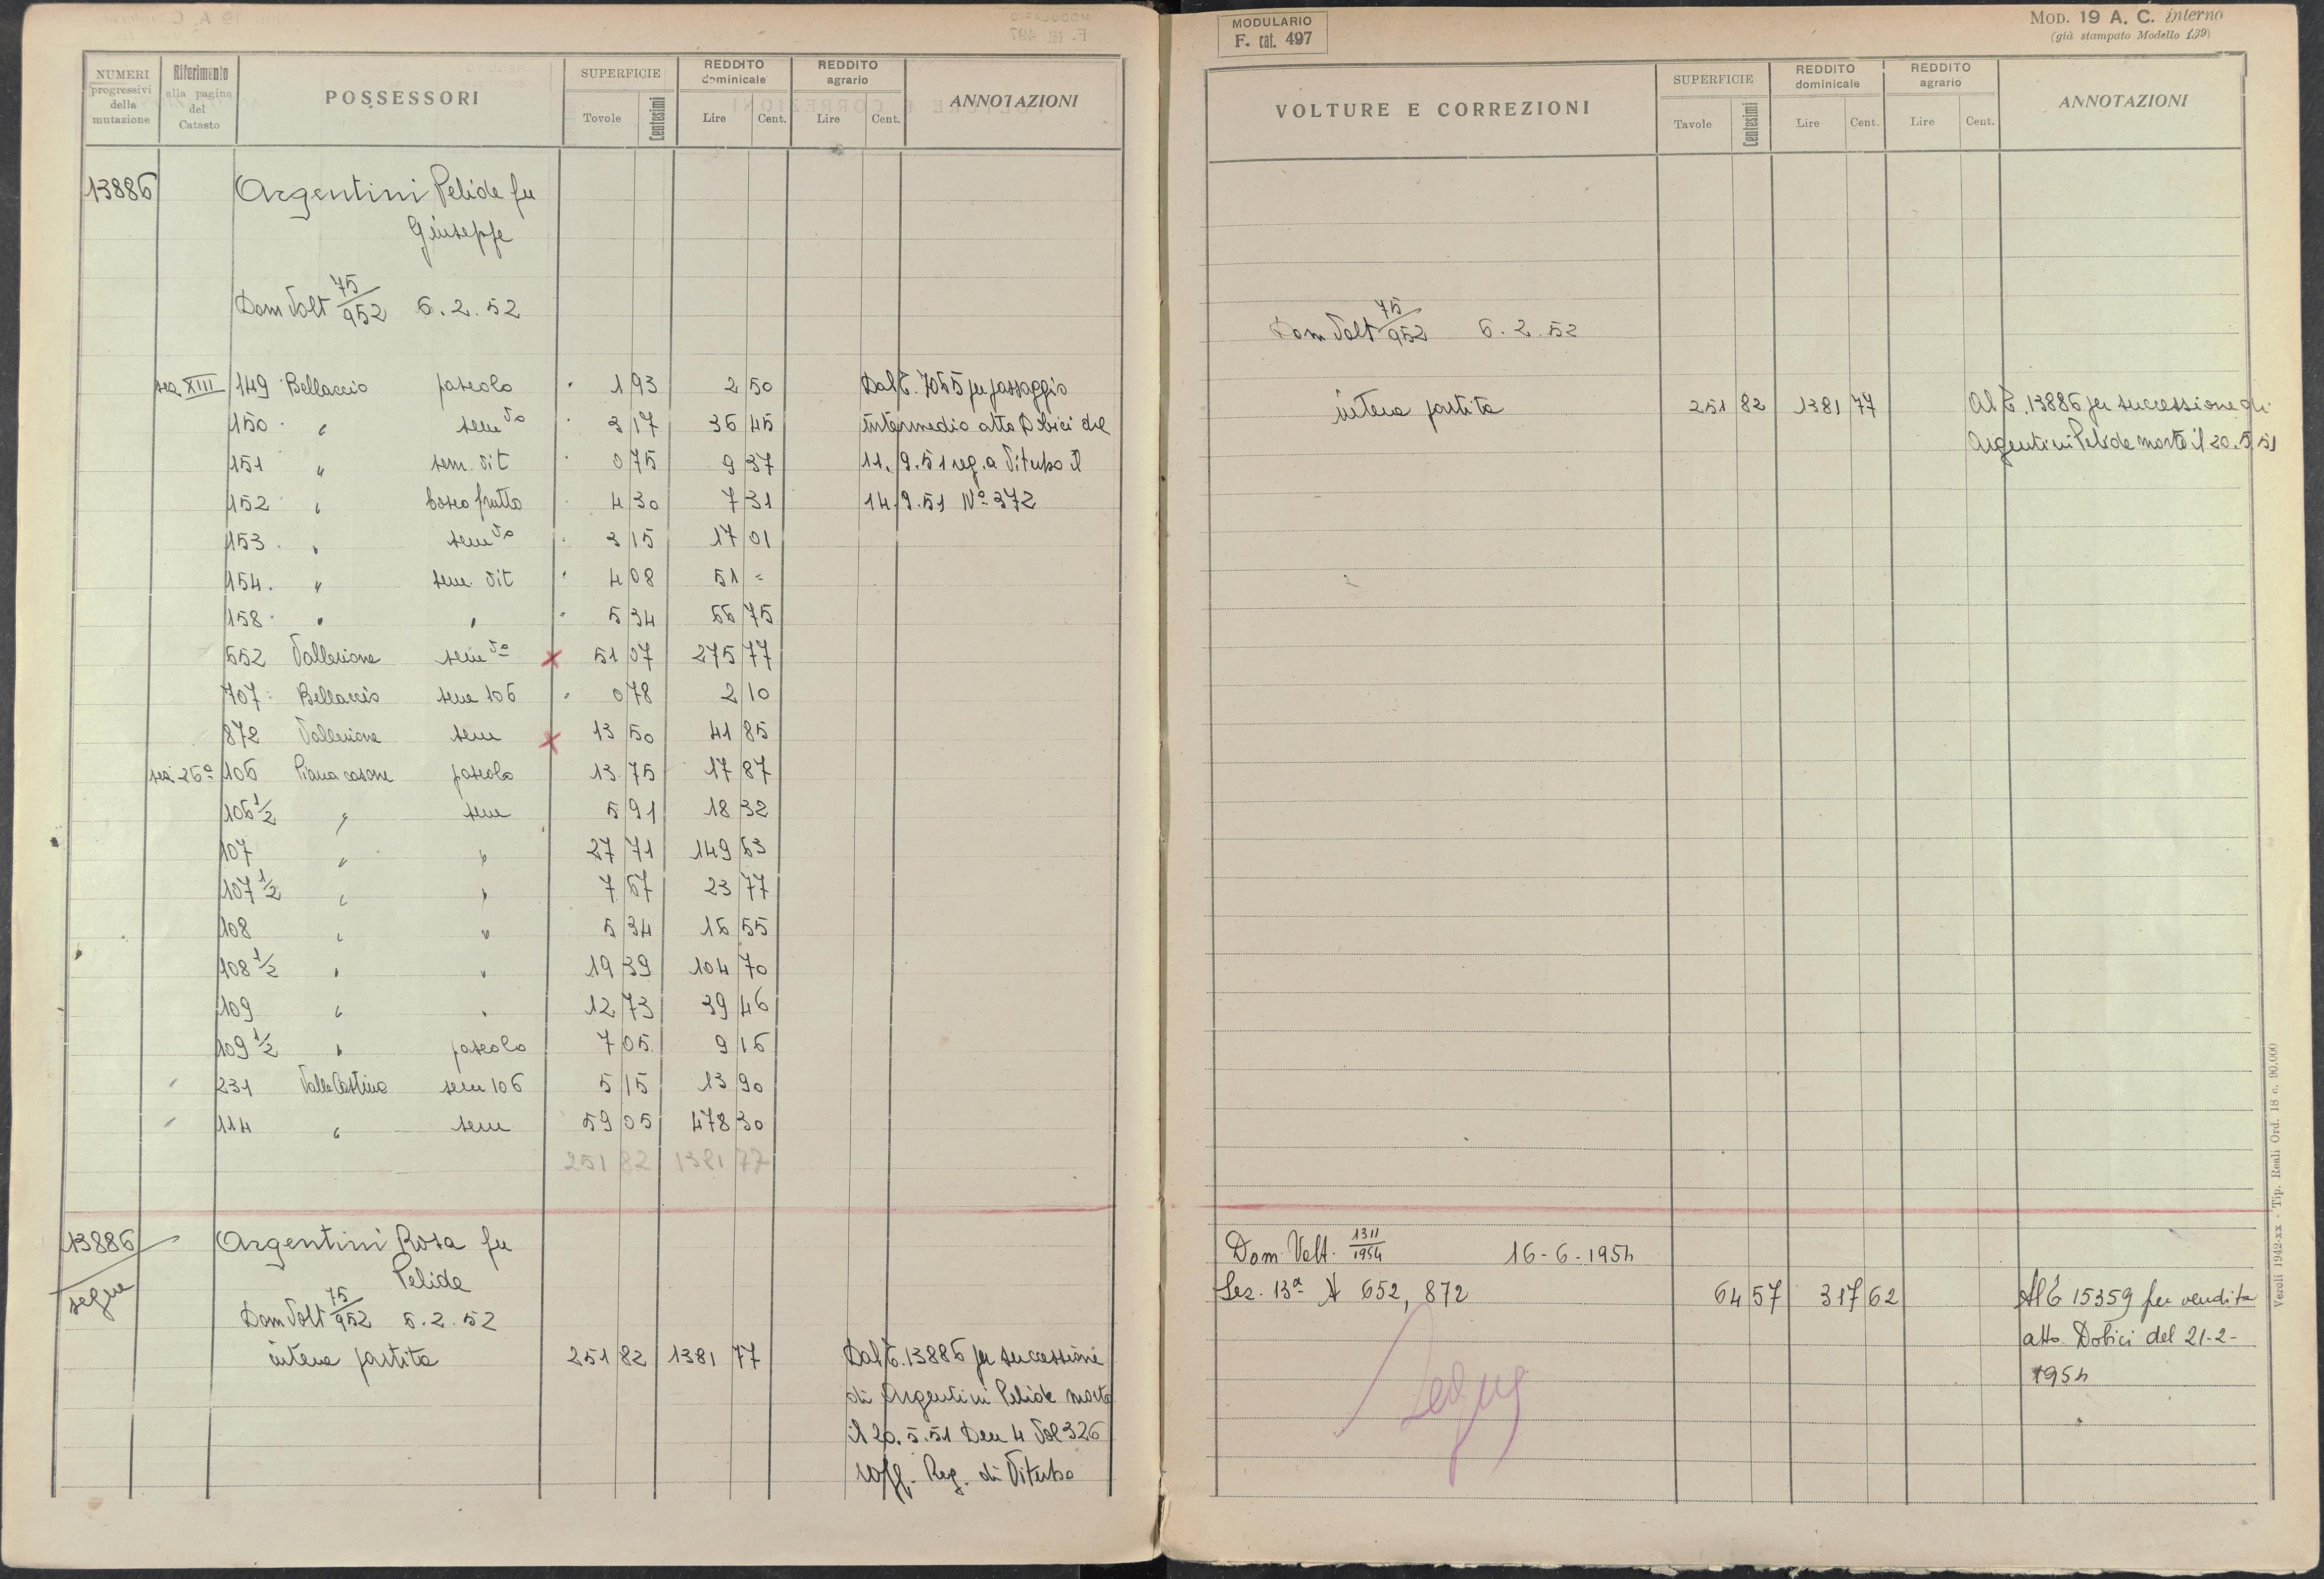 NUMERI progressivi della mutazione | Riferimento alla pagina del Catasto | POSSESSORI | SUPERFICIE Tovole Centesimi | REDDITO dominicale Lire Cent. | REDDITO agrario Lire Cent. | ANNOTAZIONI
13886 Argentini Pelide fu
Giuseppe
Dom Volt 75/952 6.2.52
sez XIII 149 Bellaccio pascolo 1 93 2 50 Dal C. 7065 per passaggio
150 " sem Vo 3 17 36 45 intermedio atto Dobici del
151 " sem. Vit 0 75 9 37 11.9.51 reg. a Viterbo il
152 " bosco frutto 4 30 7 31 14.9.51 N° 372
153 " sem Vo 3 15 17 01
154 " sem. Vit 4 08 51 =
158 " " 5 34 66 75
652 Vallerione sem Vo x 51 07 275 77
707 Bellaccio sem 106 0 78 2 10
872 Vallerione sem x 13 50 41 85
sez 26ª 106 Piana casone pascolo 13 75 17 87
106 1/2 " sem 5 91 18 32
107 " " 27 71 149 63
107 1/2 " " 7 67 23 77
108 " " 5 34 16 55
108 1/2 " " 19 39 104 70
109 " " 12 73 39 46
109 1/2 " pascolo 7 05 9 16
231 sem 106 5 15 13 90
114 " sem 59 05 478 30
251 82 1381 77
13886 Argentini Rosa fu
segue Pelide
Dom Volt 75/952 6.2.52
intera partita 251 82 1381 77 Dal C. 13886 per successione
di Argentini Pelide morto
il 20.5.51 Den 4 Vol 326
Uff. Reg. di Viterbo
MODULARIO
F. cat. 497
MOD. 19 A. C. interno
(già stampato Modello 139)
VOLTURE E CORREZIONI | SUPERFICIE Tavole Centesimi | REDDITO dominicale Lire Cent. | REDDITO agrario Lire Cent. | ANNOTAZIONI
Dom Volt 75/952 6.2.52
intera partita 251 82 1381 77 Al C. 13886 per successione di
Argentini Pelide morto il 20.5.51
Dom. Volt. 1311/1954 16-6-1954
Sez. 13ª N 652, 872 64 57 317 62 Al C 15359 per vendita
atto Dobici del 21-2-
1954
Segue
Veroli 1942-xx - Tip. Reali Ord. 18 c. 90.000